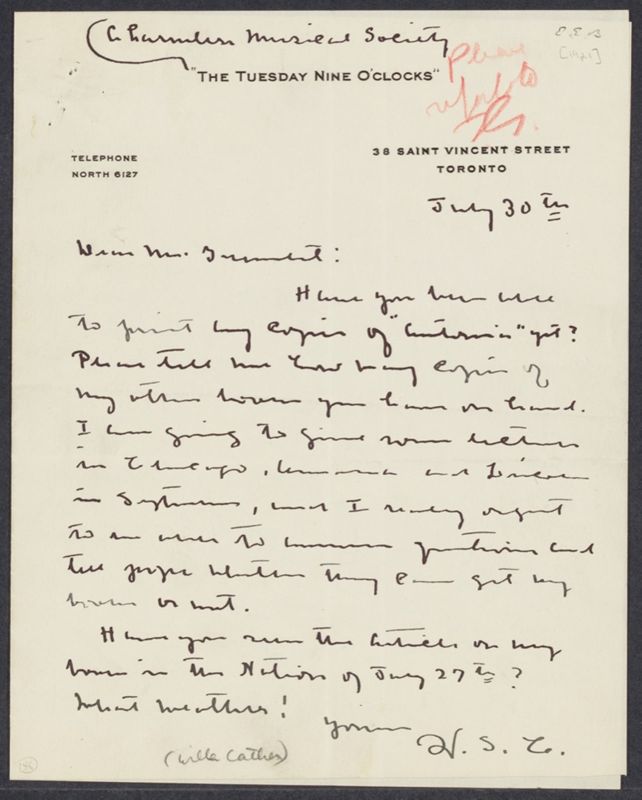 A harmless Musical Society
"THE TUESDAY NINE O'CLOCKS"
Please
refer to
[1921]
38 SAINT VINCENT STREET
TORONTO
TELEPHONE
NORTH 6127
July 30th
Dear Mr. Greenslet:
Have you been able
to print any copies of "Ántonia" yet?
Please tell me how many copies of
my other books you have on hand.
I am going to give some lectures
in Chicago, Omaha and Lincoln
in September, and I really ought
to be able to answer questions and
tell people whether they can get my
books or not.
Have you seen the article on my
books in the Nation of July 27th?
What weather!
Yours
W. S. C.
(Willa Cather)